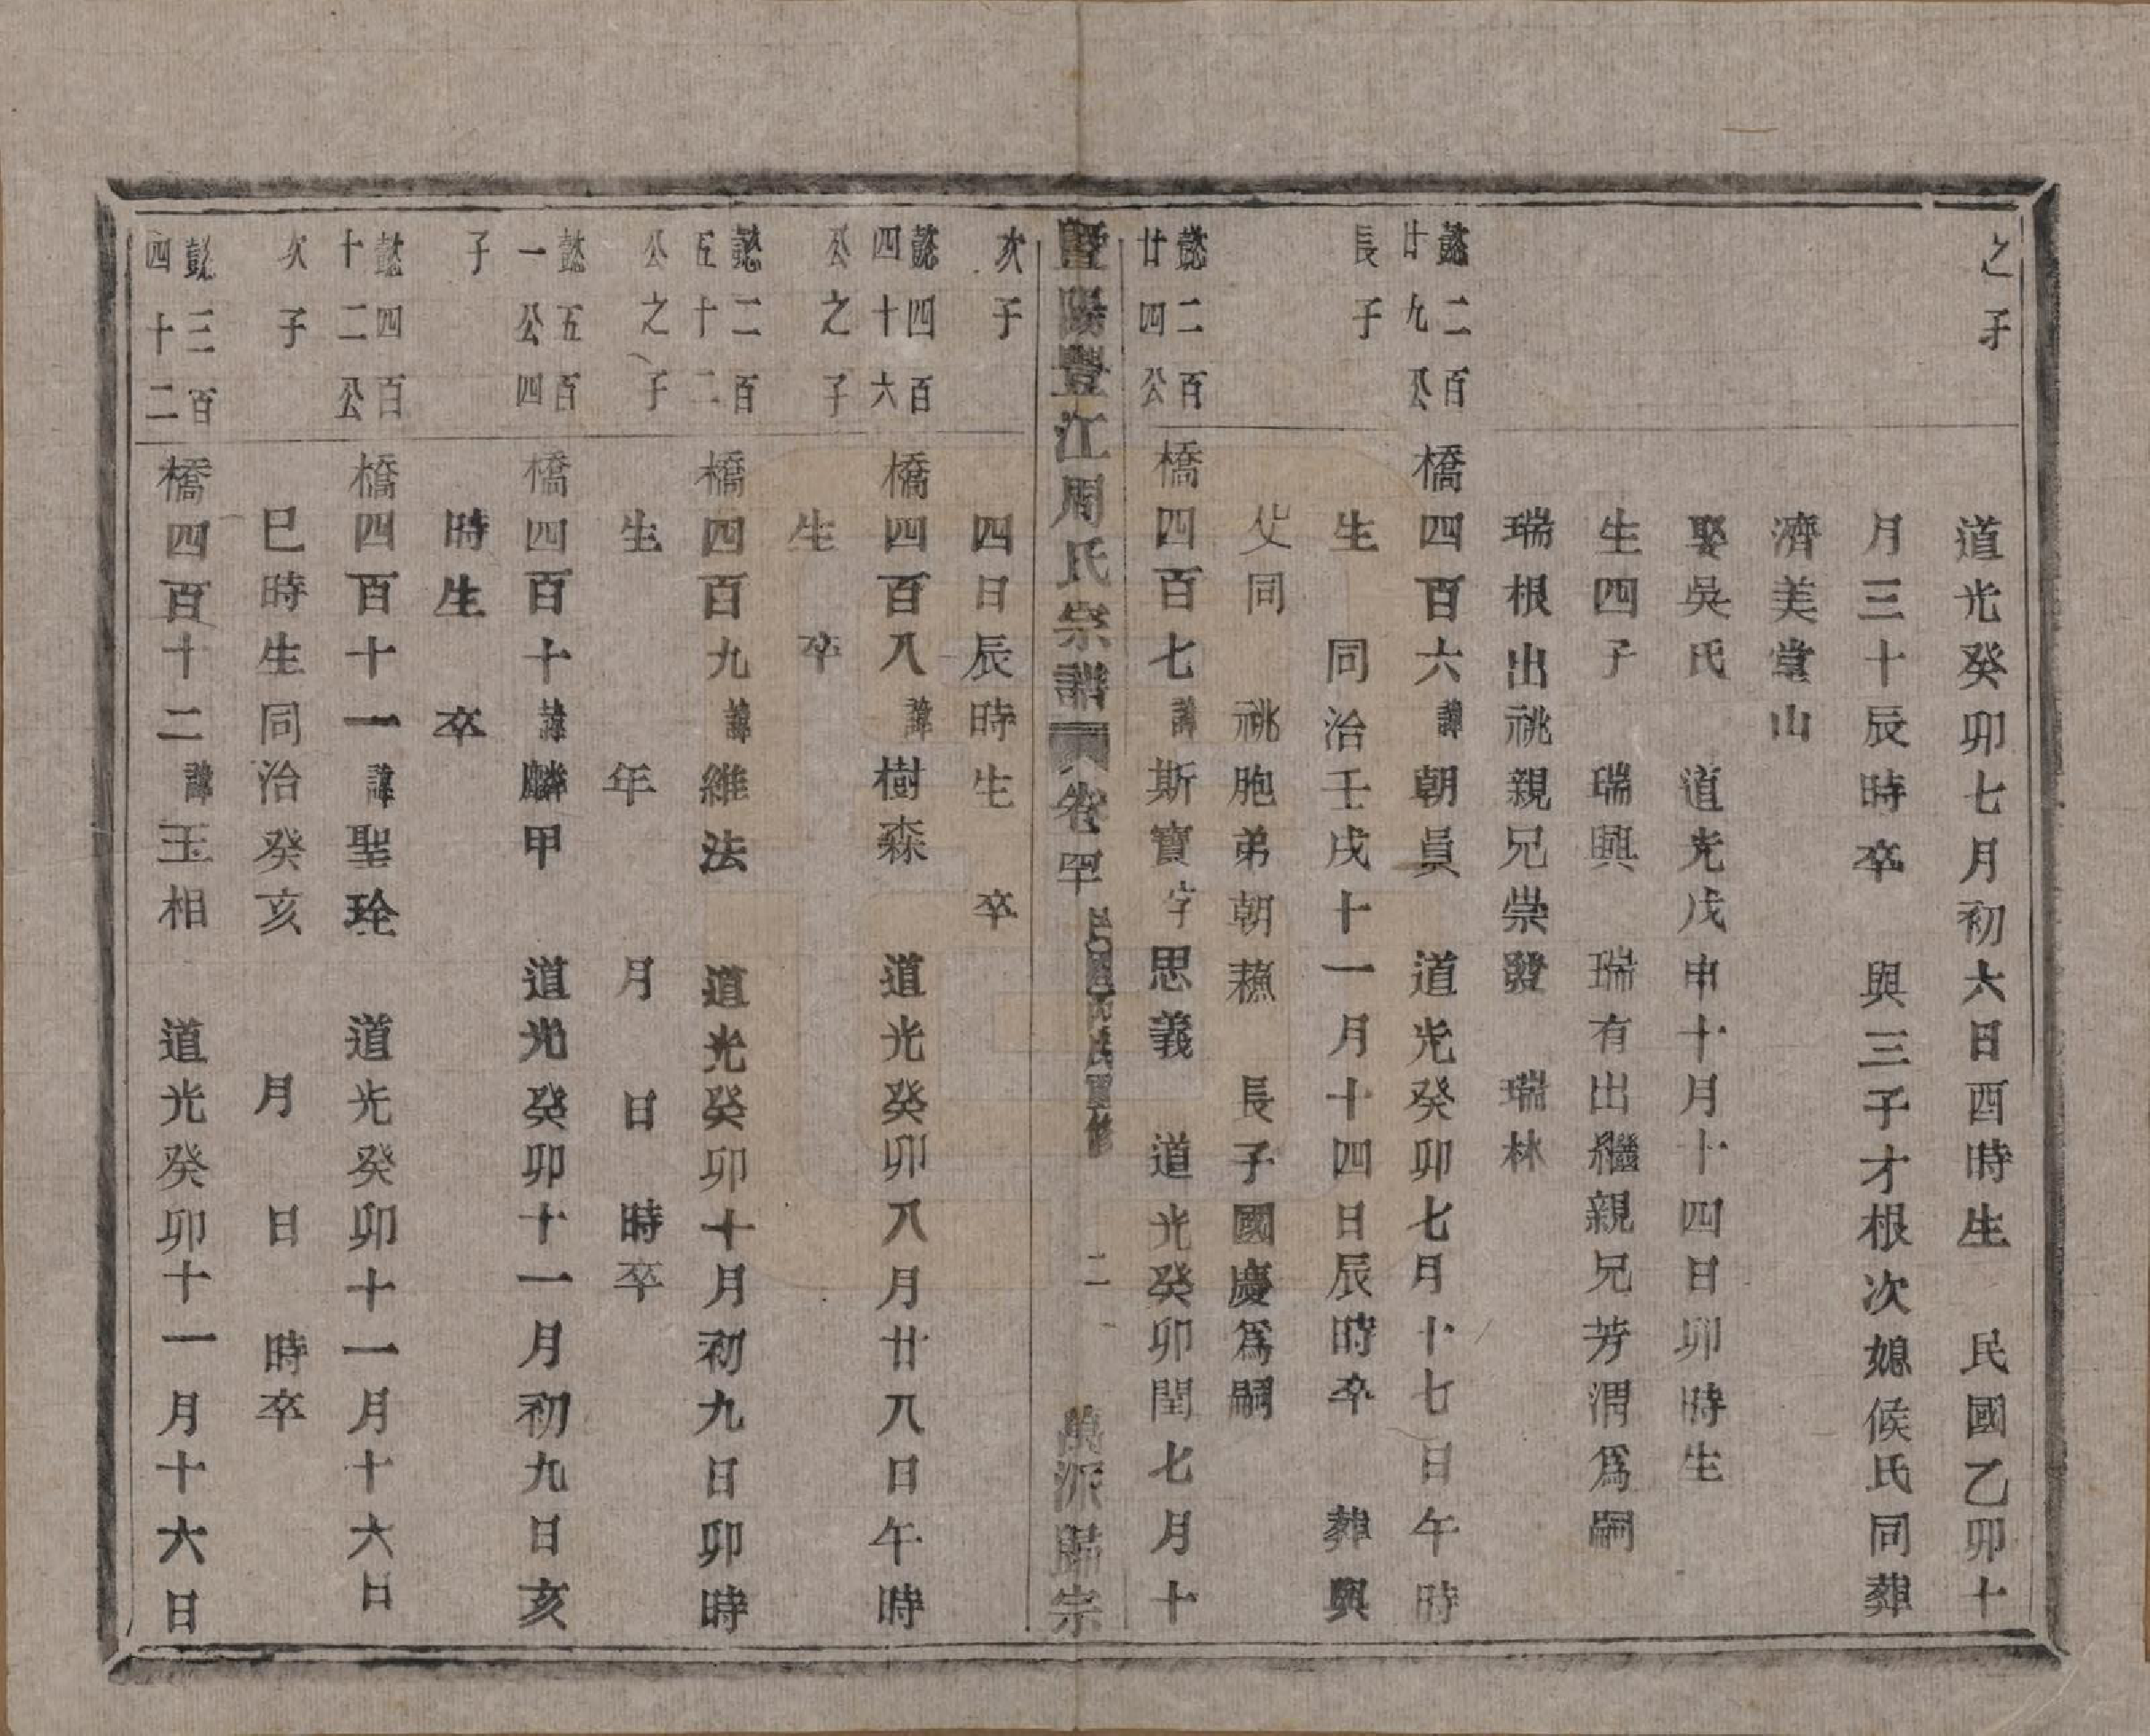 之子
道光癸卯七月初六日酉時生　民國乙卯十
月三十辰時卒　與三子才根次媳候氏同葬
濟美堂山
娶吳氏　道光戊申十月十四日卯時生
生四子　瑞興　瑞有出繼親兄芳渭爲嗣
瑞根出祧親兄崇發　瑞林
懿二百
廿九公
長子
橋四百六諱朝員　道光癸卯七月十七日午時
生　同治壬戌十一月十四日辰時卒　葬與
父同　祧胞弟朝蘓　長子國慶爲嗣
懿二百
廿四公
橋四百七諱斯寶字思義　道光癸卯閏七月十
暨陽豐江周氏宗譜　卷罕　民國　重修　二　萬派歸宗
次子
四日辰時生　卒
懿四百
四十六
公之子
橋四百八諱樹森　道光癸卯八月廿八日午時
生　卒
懿二百
五十二
公之子
橋四百九諱維法　道光癸卯十月初九日卯時
生　年　月　日　時卒
懿五百
一公四
子
橋四百十諱麟甲　道光癸卯十一月初九日亥
時生　卒
懿四百
十二公
次子
橋四百十一諱聖玲　道光癸卯十一月十六日
巳時生同治癸亥　月　日　時卒
懿三百
四十二
橋四百十二諱玉相　道光癸卯十一月十六日